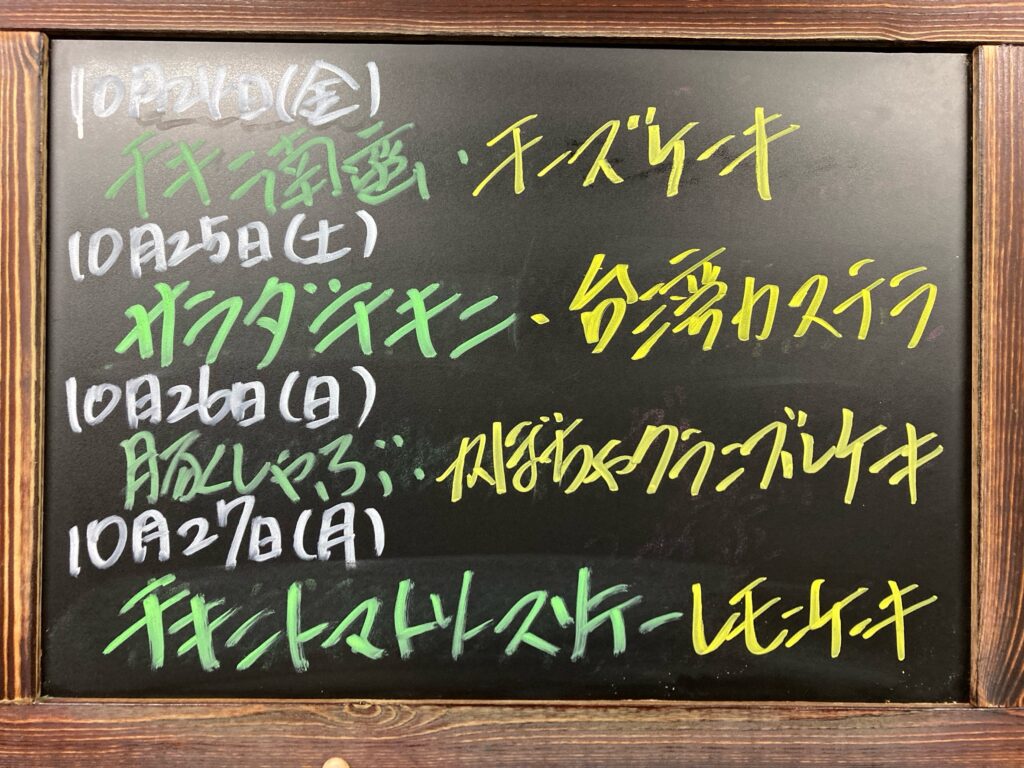 10月24日(金)
チキン南蛮・チーズケーキ
10月25日(土)
サラダチキン・台湾カステラ
10月26日(日)
豚しゃぶ・かぼちゃクランブルケーキ
10月27日(月)
チキントマトソースソテー レモンケーキ